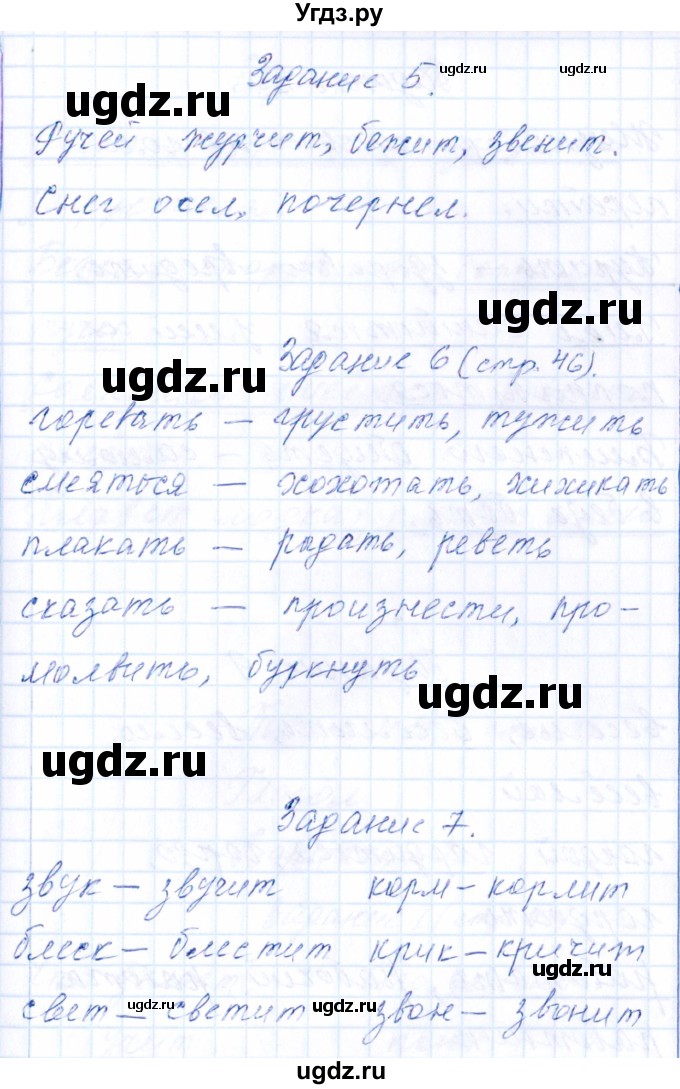 Угдз.ру
Задание 5.
Ручей журчит, бежит, звенит.
Снег осел, почернел.
Задание 6 (стр. 46).
горевать – грустить, тужить
смеяться – хохотать, хихикать
плакать – рыдать, реветь
сказать – произнести, про-
молвить, буркнуть
Задание 7.
звук – звучит корм – кормит
блеск – блестит крик – кричит
свет – светит звон – звонит
ugdz.ru
ugdz.ru
ugdz.ru
ugdz.ru
ugdz.ru
ugdz.ru
ugdz.ru
ugdz.ru
ugdz.ru
ugdz.ru
ugdz.ru